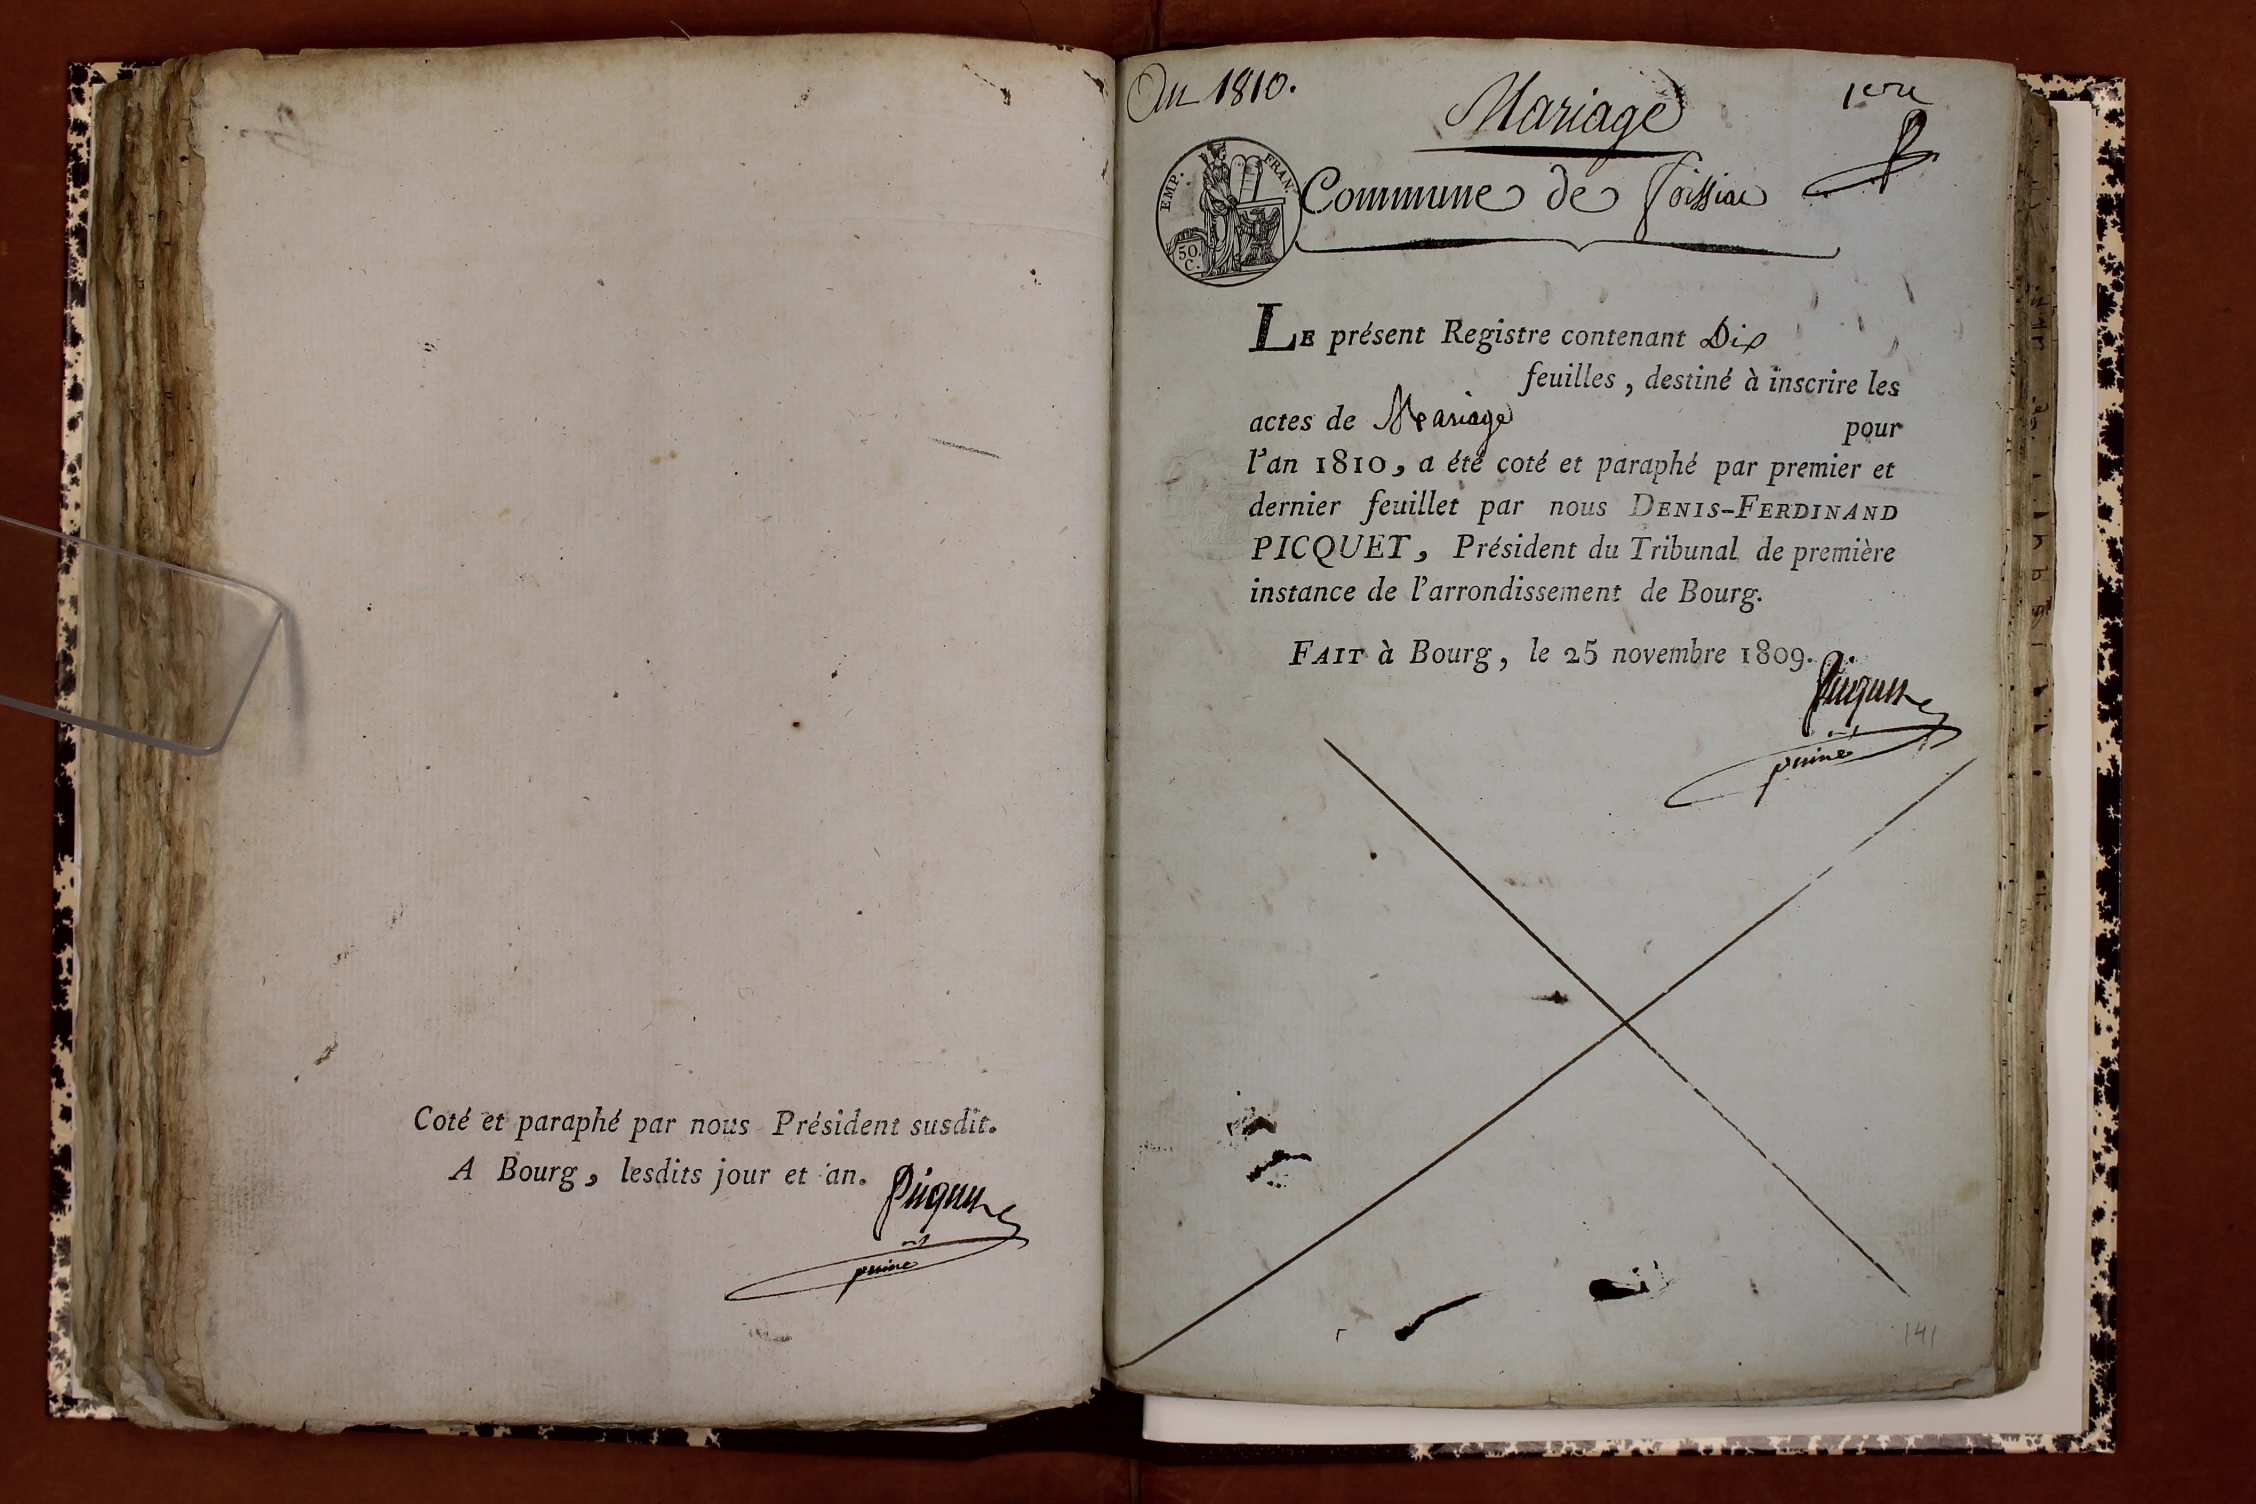 Coté et paraphé par nous Président susdit.
A Bourg, lesdits jour et an.
Picquet
puiné
An 1810.
Mariage
1ere
EMP. FRAN.
50.
C.
Commune de Foissiat
LE présent Registre contenant Dix
feuilles, destiné à inscrire les
actes de Mariage pour
l'an 1810, a été coté et paraphé par premier et
dernier feuillet par nous DENIS-FERDINAND
PICQUET, Président du Tribunal de première
instance de l'arrondissement de Bourg.
FAIT à Bourg, le 25 novembre 1809.
Picquet
puiné
141